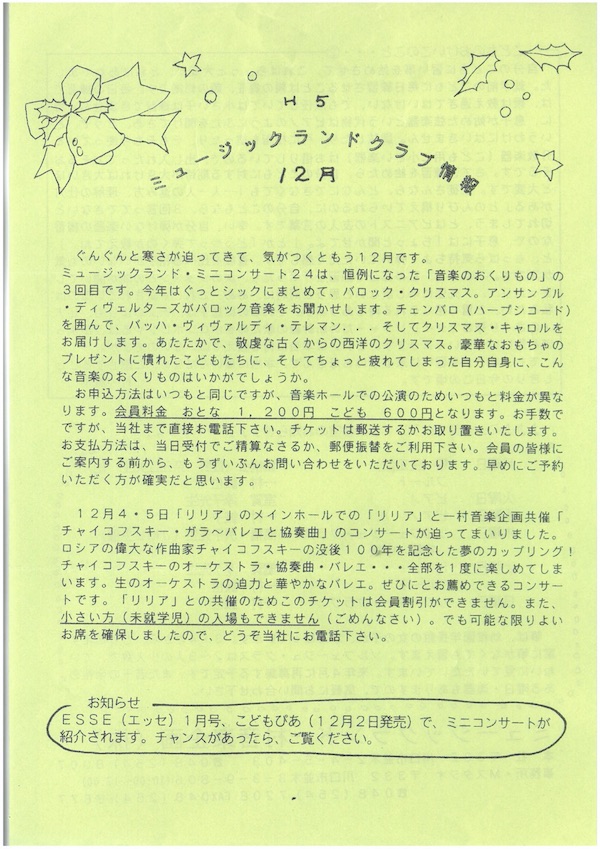 H5
ミュージックランドクラブ情報
12月
ぐんぐんと寒さが迫ってきて、気がつくともう12月です。
ミュージックランド・ミニコンサート24は、恒例になった「音楽のおくりもの」の
3回目です。今年はぐっとシックにまとめて、バロック・クリスマス。アンサンブル
・ディヴェルターズがバロック音楽をお聞かせします。チェンバロ（ハープシコード）
を囲んで、バッハ・ヴィヴァルディ・テレマン．．．そしてクリスマス・キャロルを
お届けします。あたたかで、敬虔な古くからの西洋のクリスマス。豪華なおもちゃの
プレゼントに慣れたこどもたちに、そしてちょっと疲れてしまった自分自身に、こん
な音楽のおくりものはいかがでしょうか。
お申込方法はいつもと同じですが、音楽ホールでの公演のためいつもと料金が異な
ります。会員料金　おとな　1，200円　こども　600円となります。お手数で
ですが、当社まで直接お電話下さい。チケットは郵送するかお取り置きいたします。
お支払方法は、当日受付でご精算なさるか、郵便振替をご利用下さい。会員の皆様に
ご案内する前から、もうずいぶんお問い合わせをいただいております。早めにご予約
いただく方が確実だと思います。
12月4・5日「リリア」のメインホールでの「リリア」と一村音楽企画共催「
チャイコフスキー・ガラ～バレエと協奏曲」のコンサートが迫ってまいりました。
ロシアの偉大な作曲家チャイコフスキーの没後100年を記念した夢のカップリング！
チャイコフスキーのオーケストラ・協奏曲・バレエ・・・全部を1度に楽しめてしま
います。生のオーケストラの迫力と華やかなバレエ。ぜひにとお薦めできるコンサー
トです。「リリア」との共催のためこのチケットは会員割引ができません。また、
小さい方（未就学児）の入場もできません（ごめんなさい）。でも可能な限りよい
お席を確保しましたので、どうぞ当社にお電話下さい。
お知らせ
ESSE（エッセ）1月号、こどもぴあ（12月2日発売）で、ミニコンサートが
紹介されます。チャンスがあったら、ご覧ください。